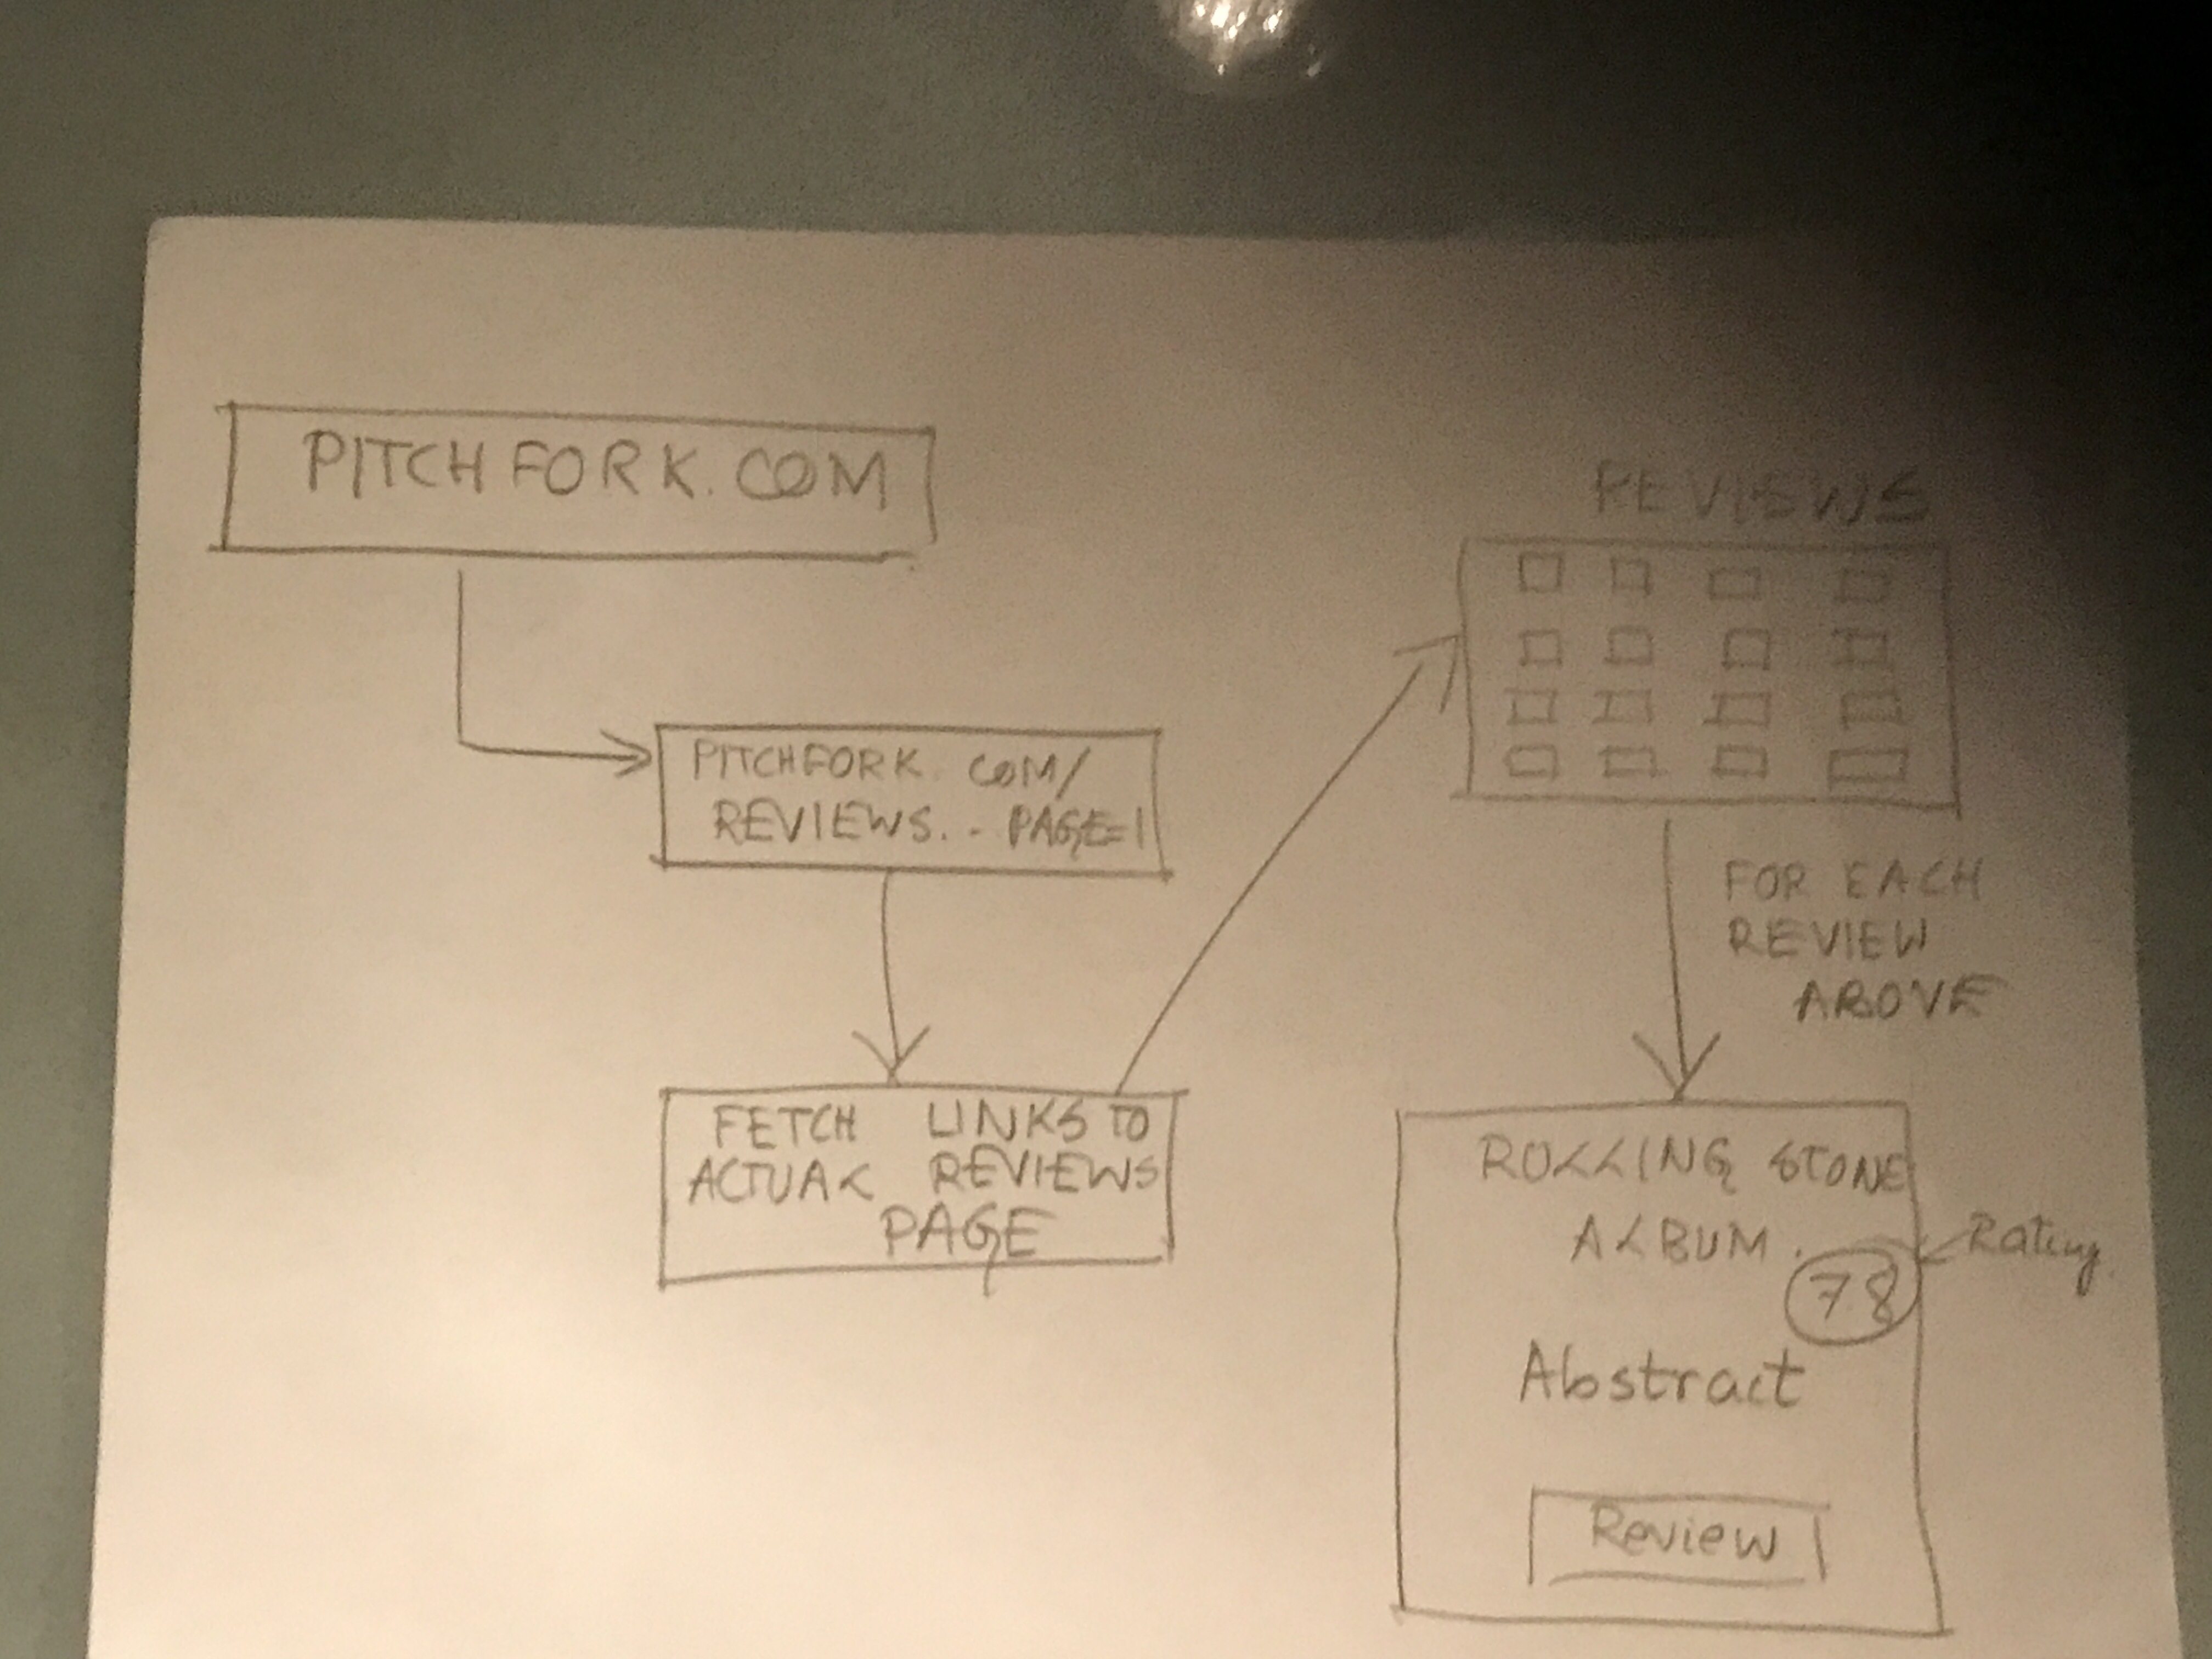 PITCHFORK.COM
PITCHFORK.COM/
REVIEWS.. PAGE=1
FETCH LINKS TO
ACTUAL REVIEWS
PAGE
REVIEWS
FOR EACH
REVIEW
ABOVE
ROLLING STONE
ALBUM.
Rating.
78
Abstract
Review